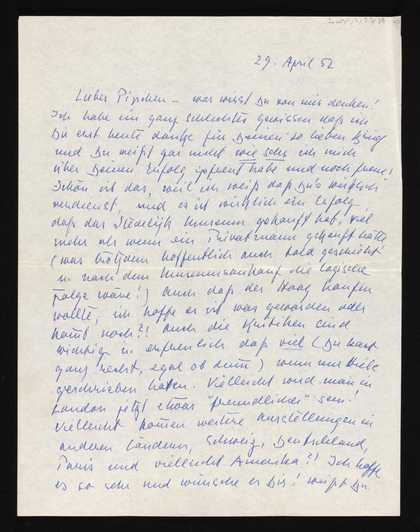 29. April 52
Lieber Pipchen – was wirst Du von mir denken!
Ich habe ein ganz schlechtes gewissen dass ich
Du erst heute danke für Deinen so lieben Brief
und Du weisst gar nicht wie sehr ich mich
über Deinen Erfolg gefreut habe und noch freue!
Schön ist das, weil ich weiss dass Du's wirklich
verdienst, und es ist wirklich ein Erfolg
dass das Stedelijk Museum gekauft hat, viel
mehr als wenn ein Privatmann gekauft hätte
(was trotzdem hoffentlich auch bald geschieht
u. nach dem Museumsankauf die logische
Folge wäre!) Auch dass der Haag kaufen
wollte, ich hoffe es ist was geworden oder
kommt noch?! Auch die Kritiken sind
wichtig u. erfreulich dass viel (Du hast
ganz recht, egal ob dumm) wenn nur
geschrieben haben. Vielleicht wird man in
London jetzt etwas "freundlicher" sein!
Vielleicht kommen weitere Ausstellungen in
anderen Ländern, Schweiz, Deutschland,
Paris und vielleicht Amerika?! Ich hoffe
es so sehr und wünsche es Dir! weisst Du